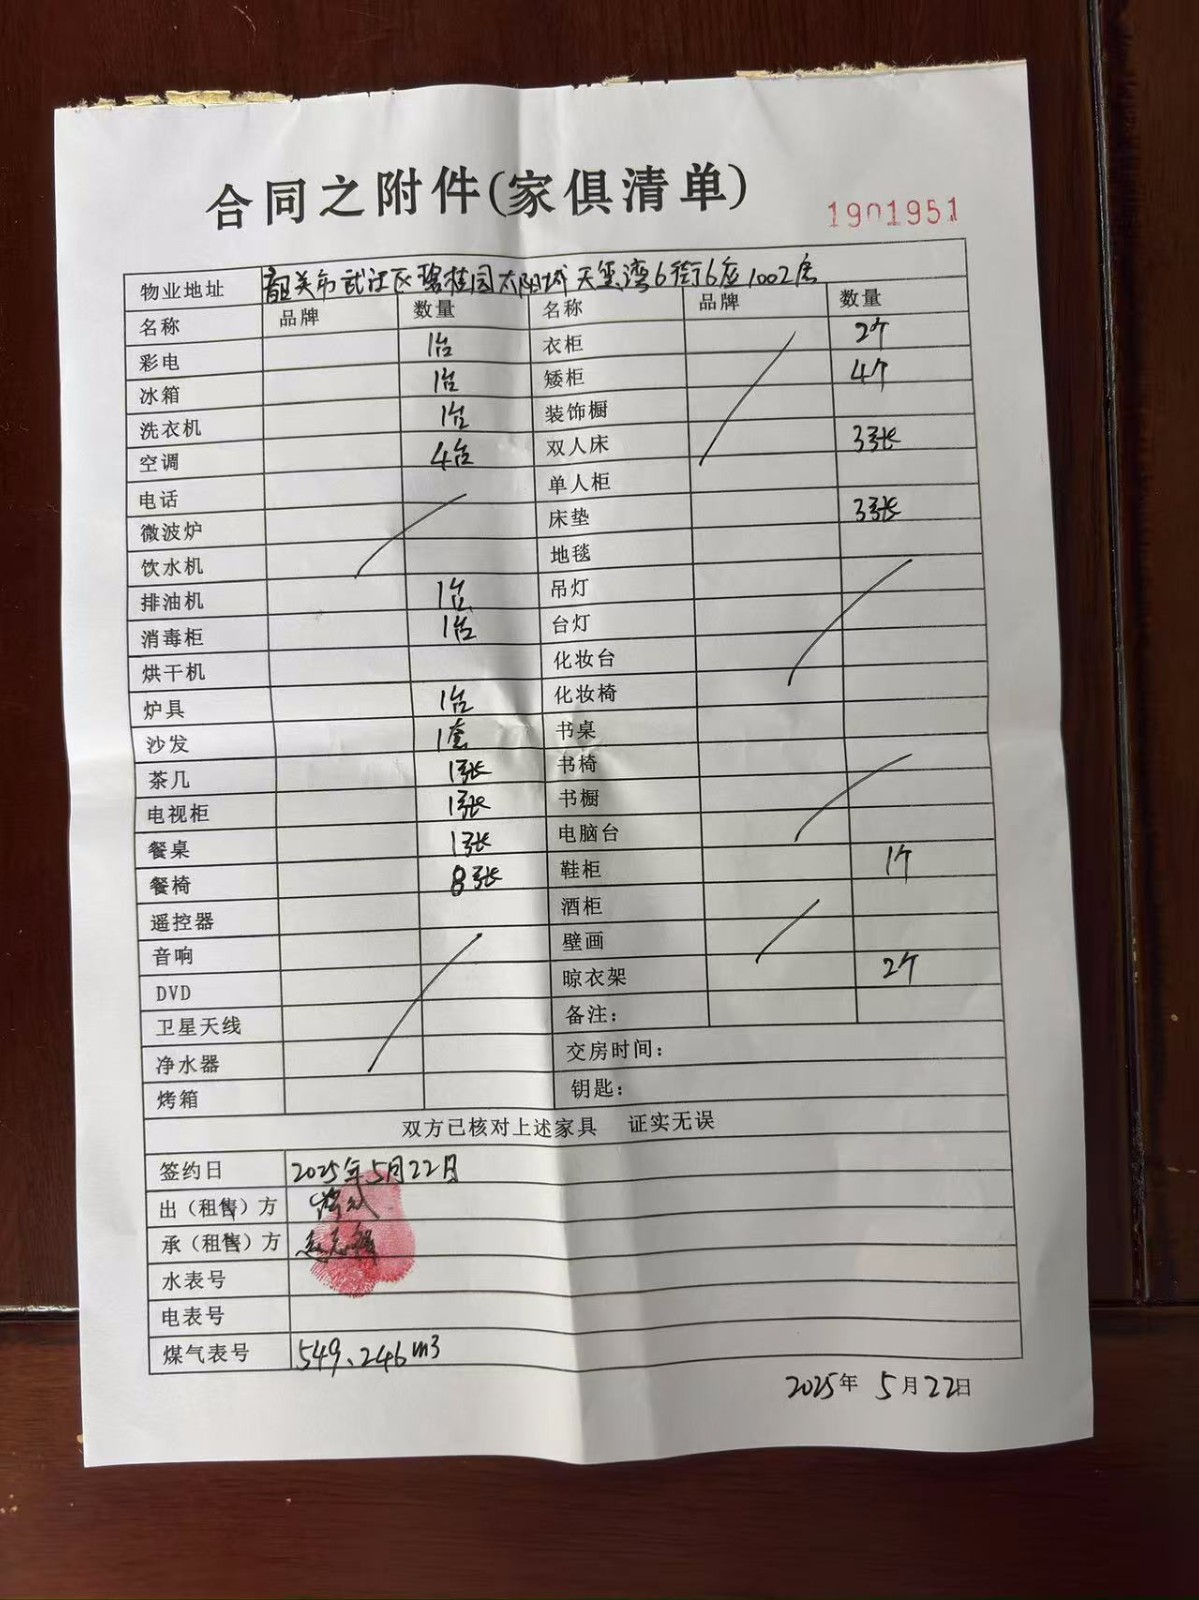 合同之附件(家俱清单)
1901951
物业地址 韶关市武江区碧桂园太阳城天玺湾6街6座1002房
名称 品牌 数量 名称 品牌 数量
彩电 1台 衣柜 2个
冰箱 1台 矮柜 4个
洗衣机 1台 装饰橱
空调 4台 双人床 3张
电话 单人柜
微波炉 床垫 3张
饮水机 地毯
排油机 1台 吊灯
消毒柜 1台 台灯
烘干机 化妆台
炉具 1台 化妆椅
沙发 1套 书桌
茶几 1张 书椅
电视柜 1张 书橱
餐桌 1张 电脑台
餐椅 8张 鞋柜 1个
遥控器 酒柜
音响 壁画
DVD 晾衣架 2个
卫星天线 备注:
净水器 交房时间:
烤箱 钥匙:
双方已核对上述家具 证实无误
签约日 2025年5月22日
出(租售)方
承(租售)方
水表号
电表号
煤气表号 549、246m3
2025年 5月22日